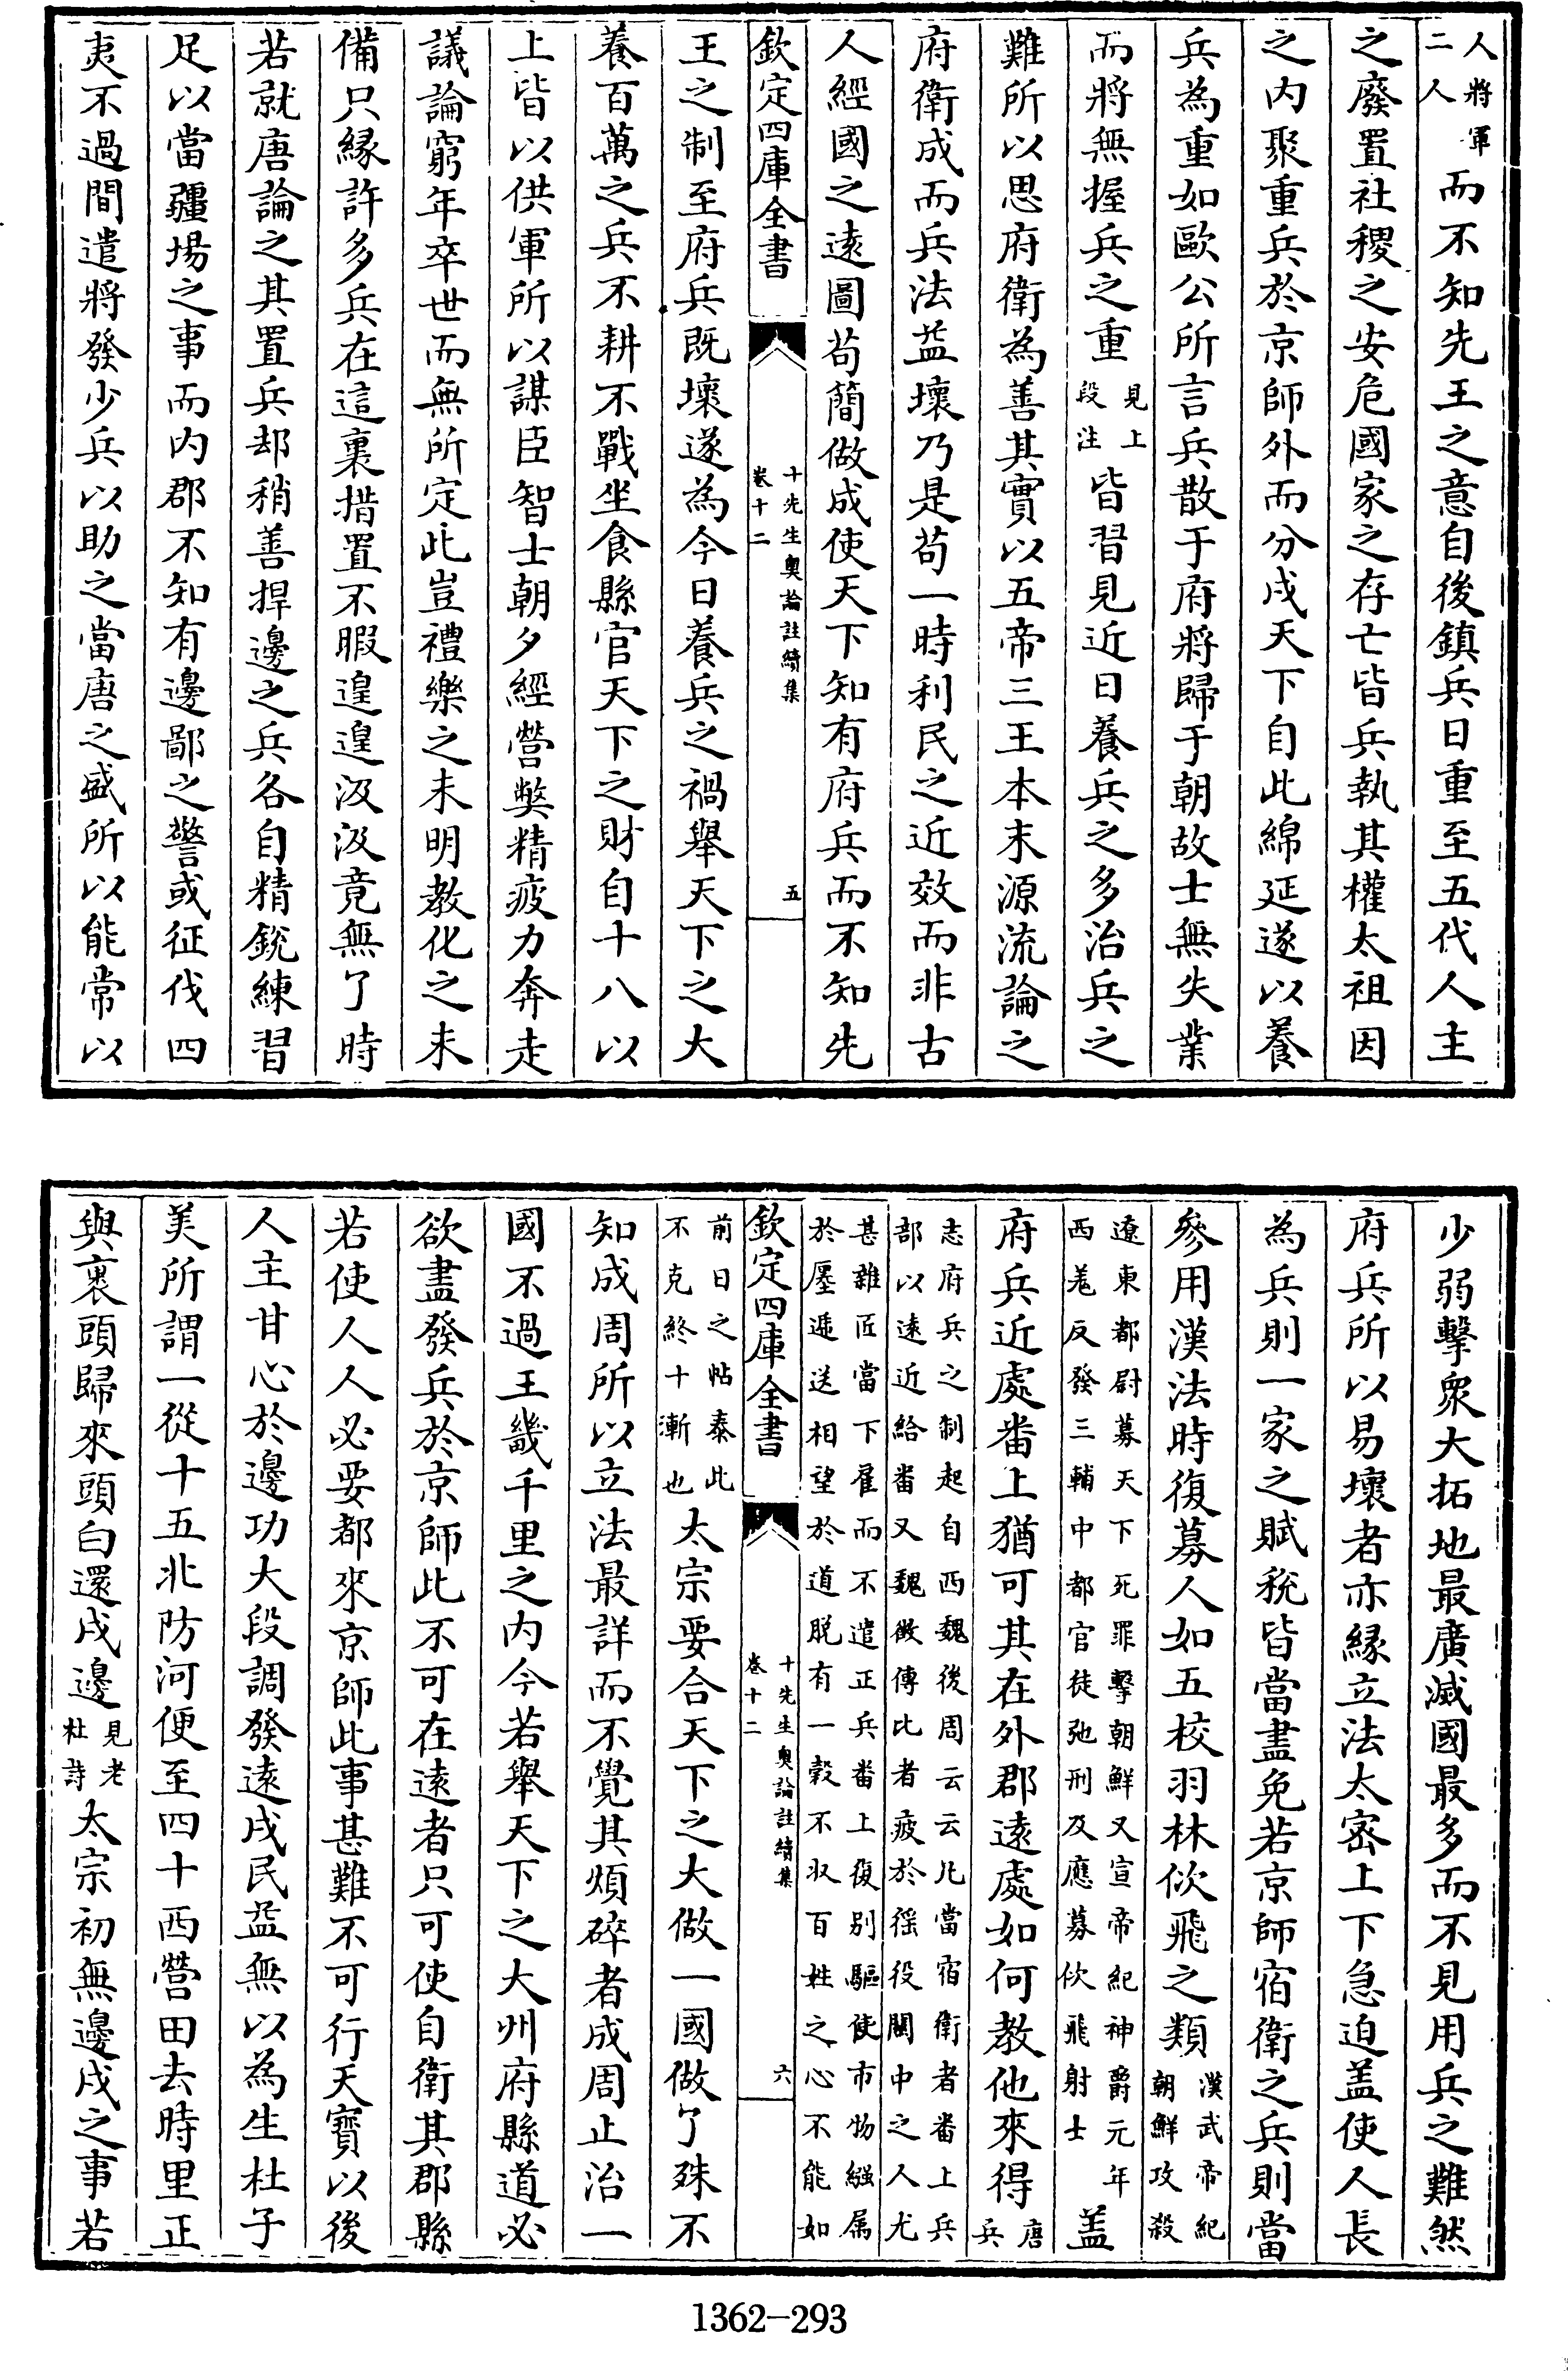 人將軍
二人
而不知先王之意自後鎮兵日重至五代人主
之廢置社稷之安危國家之存亡皆兵執其權太祖因
之内聚重兵於京師外而分戍天下自此綿延遂以養
兵為重如歐公所言兵散于府將歸于朝故士無失業
而將無握兵之重
見上
段注
皆習見近日養兵之多治兵之
難所以思府衛為善其實以五帝三王本末源流論之
府衛成而兵法益壞乃是苟一時利民之近效而非古
人經國之逺圖苟簡做成使天下知有府兵而不知先
欽定四庫全書
十先生奥論註續集
卷十二
五
王之制至府兵既壞遂為今日養兵之禍舉天下之大
養百萬之兵不耕不戰坐食縣官天下之財自十八以
上皆以供軍所以謀臣智士朝夕經營獘精疲力奔走
議論窮年卒世而無所定此豈禮樂之未明教化之未
備只縁許多兵在這裏措置不暇遑遑汲汲竟無了時
若就唐論之其置兵却稍善捍邊之兵各自精鋭練習
足以當疆埸之事而内郡不知有邊鄙之警或征伐四
夷不過間遣將發少兵以助之當唐之盛所以能常以
少弱擊衆大拓地最廣滅國最多而不見用兵之難然
府兵所以易壞者亦縁立法太宻上下急迫盖使人長
為兵則一家之賦稅皆當盡免若京師宿衛之兵則當
參用漢法時復募人如五校羽林佽飛之類
漢武帝紀
朝鮮攻殺
遼東都尉募天下死罪擊朝鮮又宣帝紀神爵元年
西羗反發三輔中都官徒弛刑及應募佽飛射士
盖
府兵近處番上猶可其在外郡逺處如何教他來得
唐
兵
志府兵之制起自西魏後周云云凡當宿衛者番上兵
部以逺近給番又魏徴傳比者疲於徭役關中之人尤
甚雜匠當下雇而不遣正兵番上復别驅使市物繦屬
於廛遞送相望於道脱有一榖不収百姓之心不能如
欽定四庫全書
十先生奥論註續集
卷十二
六
前日之帖泰此
不克終十漸也
太宗要合天下之大做一國做了殊不
知成周所以立法最詳而不覺其煩碎者成周止治一
國不過王畿千里之内今若舉天下之大州府縣道必
欲盡發兵於京師此不可在逺者只可使自衛其郡縣
若使人人必要都來京師此事甚難不可行天寳以後
人主甘心於邊功大段調發逺戍民益無以為生杜子
美所謂一從十五北防河便至四十西營田去時里正
與裹頭歸來頭白還戍邊
見老
杜詩
太宗初無邊戍之事若
1362-293